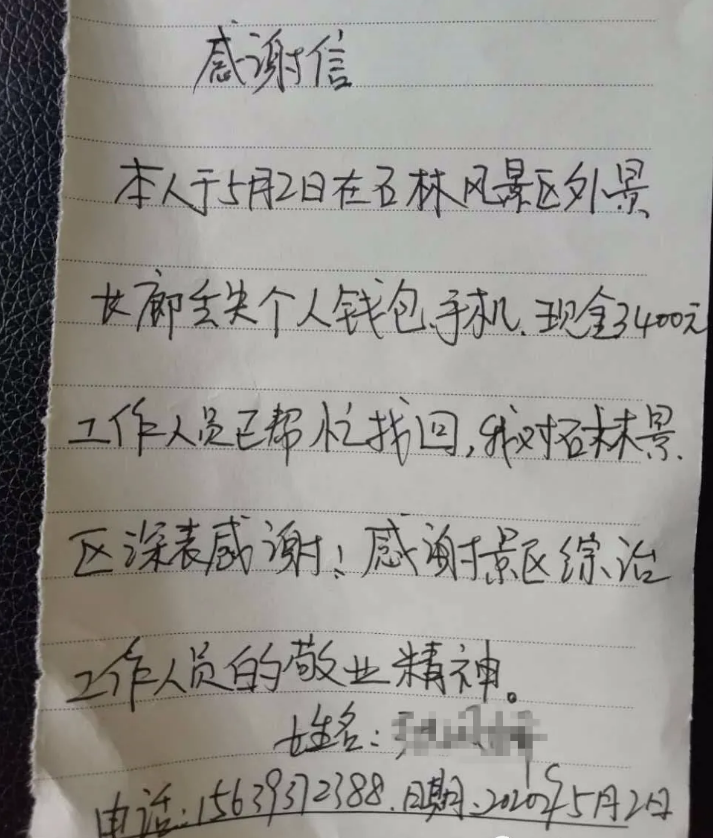 感谢信
本人于5月2日在石林风景区外景
长廊丢失个人钱包、手机、现金3400元
工作人员已帮忙找回,我对石林景
区深表感谢!感谢景区综治
工作人员的敬业精神。
姓名:
电话:15639372388.日期:2020年5月2日